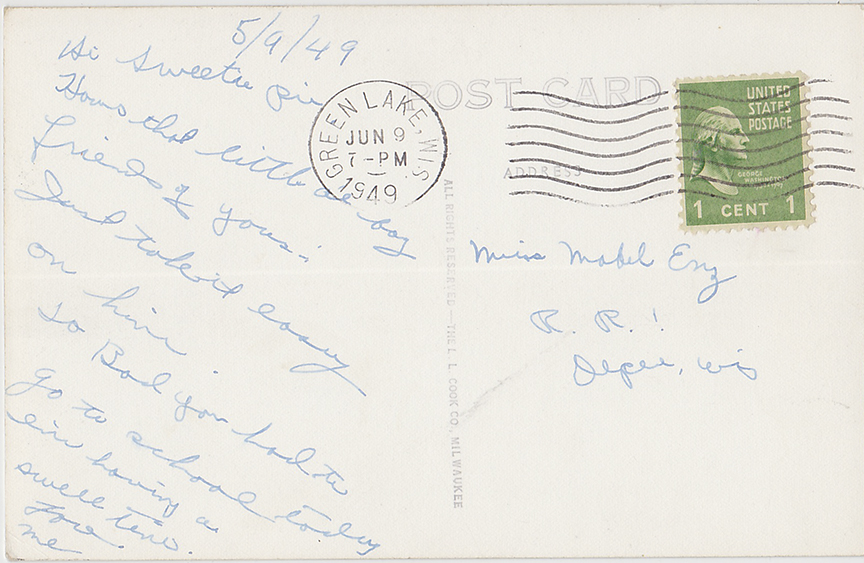 5/9/49
Hi Sweetie pie
Hows that little ole boy
friends of yours.
Just take it easy
on him.
So Bad you had to
go to school today
eim having a
swell time.
Love
me
POST CARD
GREEN LAKE, WIS
JUN 9
7-PM
1949
UNITED
STATES
POSTAGE
GEORGE
WASHINGTON
1 CENT 1
ADDRESS
Miss Mabel Enz
R. R. 1
Depere, Wis
ALL RIGHTS RESERVED — THE L. L. COOK CO., MILWAUKEE